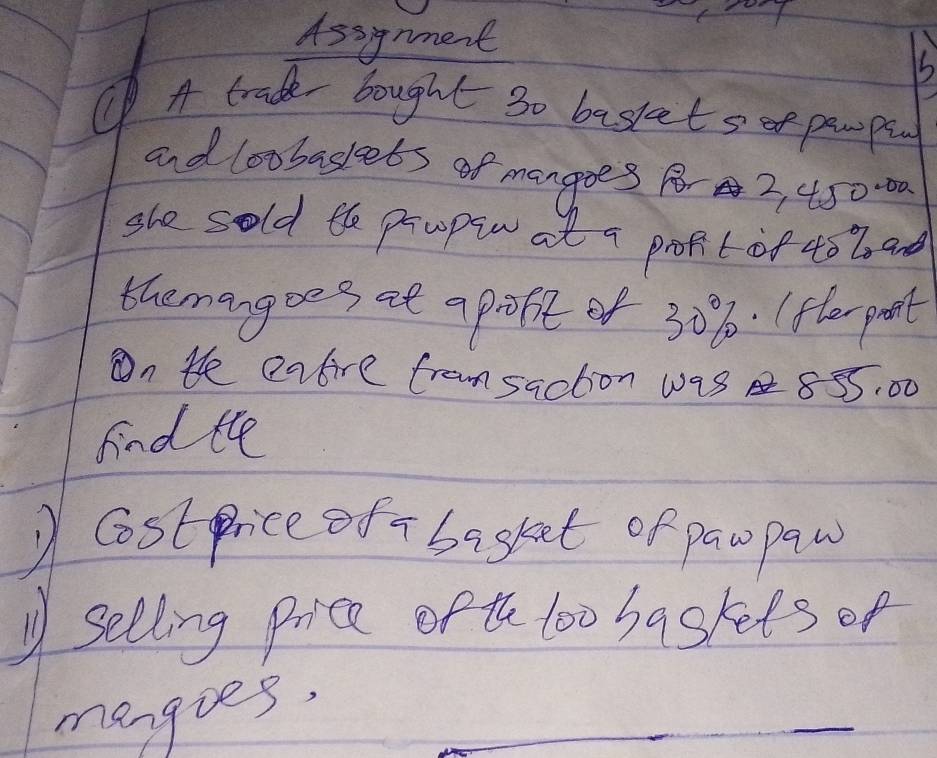 Assignment
(1) A trader bought 30 baskets of pawpaw
and 100 baskets of mangoes for ₦ 2,450.00
she sold the pawpaw at a profit of 40% and
the mangoes at a profit of 30%. If her profit
On the entire transaction was ₦ 855.00
find the
i) Cost price of a basket of pawpaw
ii) Selling price of the 100 baskets of
mangoes.